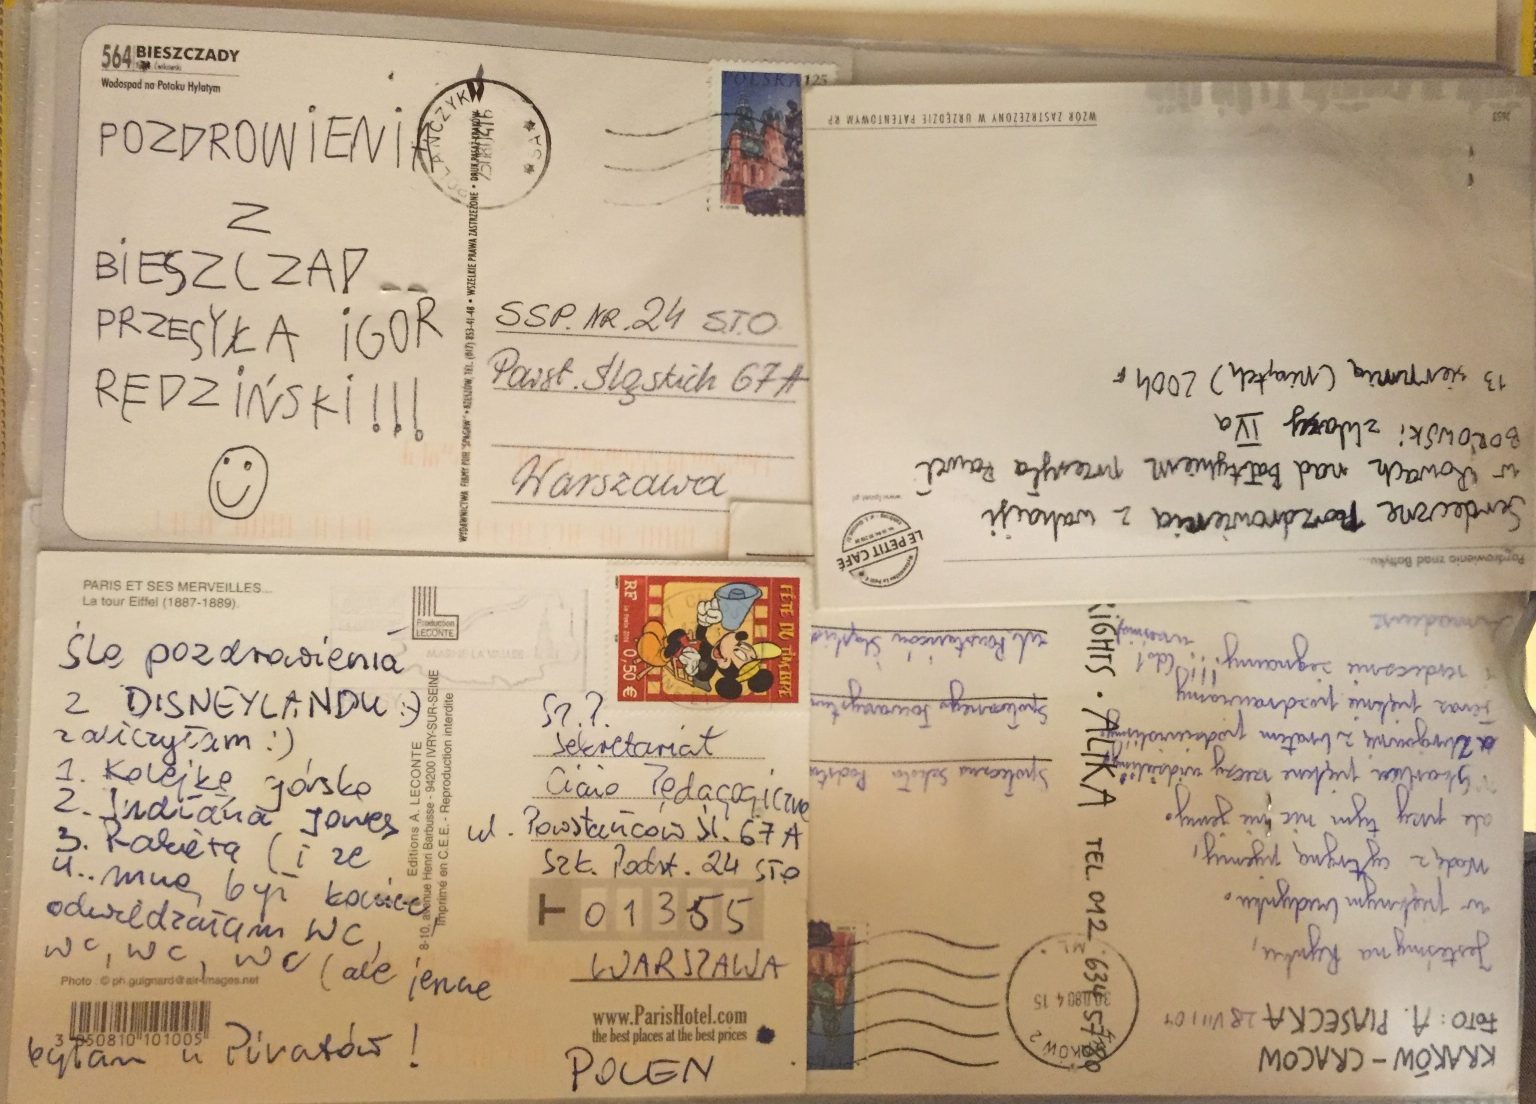 564 BIESZCZADY
Wodospad na Potoku Hylatym
POZDROWIENIA
Z
BIESZCZAD
PRZESYŁA IGOR
RĘDZIŃSKI!!!
WYDAWNICTWA FIRMY PIOTR "SPAGAW" • RZESZÓW, TEL. (017) 853-41-48 • WSZELKIE PRAWA ZASTRZEŻONE • DRUK
POLAŃCZYK
POLSKA 125
SSP. NR. 24 STO
Powst. Śląskich 67A
Warszawa
WZÓR ZASTRZEŻONY W URZĘDZIE PATENTOWYM RP
Pozdrowienia znad Bałtyku...
LE PETIT CAFÉ
Serdeczne Pozdrowienia z wakacji
w Rowach nad Bałtykiem przesyła Paweł
BOROWSKI z klasy IVa
13 sierpnia (piątek) 2004 r
PARIS ET SES MERVEILLES...
La tour Eiffel (1887-1889)
Production
LECONTE
MARNE LA VALLEE
Ślę pozdrowienia
z DISNEYLANDU :)
zaliczyłam :)
1. Kolejkę górską
2. Indiana Jones
3. Rakietą (i ze
4. mną był koniec,
odwiedzałam WC,
WC, WC, WC (ale jeszcze
byłam u Piratów!
Photo : © ph.guignard@air-images.net
3 050810 101005
Editions A. LECONTE
8-10, avenue Henri Barbusse - 94200 IVRY-SUR-SEINE
Imprimé en C.E.E. - Reproduction interdite
FÊTE DU TIMBRE
RF
0,50 €
Sz.P.
Sekretariat
Ciało Pedagogiczne
ul. Powstańców Śl. 67A
Szk. Podst. 24 STO
01355
WARSZAWA
www.ParisHotel.com
the best places at the best prices
POLEN
KRAKÓW – CRACOW
FOTO: A. PIASECKA 28 VIII 04
Jesteśmy na Rynku,
w pięknym budynku.
Wodę z cytryną pijemy,
ale przy tym nic nie jemy.
piękne rzeczy widzieliśmy
z bratem podziwialiśmy
Teraz pięknie pozdrawiamy
i serdecznie żegnamy!!!
Społeczna Szkoła Podst
Społecznego Towarzystwa
ul. Powstańców Śląskich
RIGHTS · ALIKA TEL 012 634 57 80
KRAKÓW 2